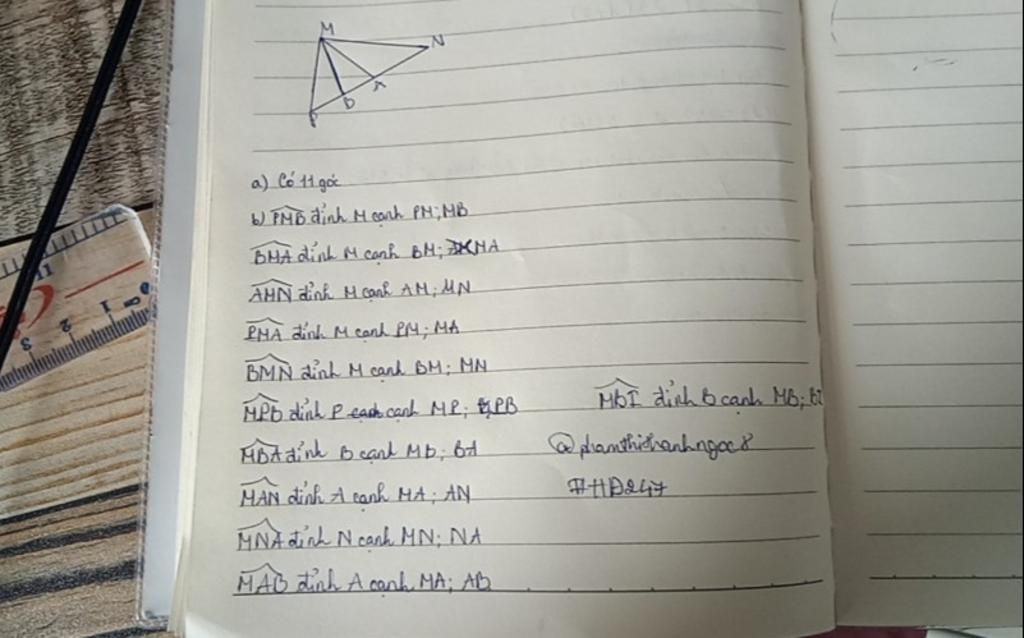 M
N
A
B
P
a) Có 11 góc
b) PMB đỉnh M cạnh PM; MB
BMA đỉnh M cạnh BM; MA
AMN đỉnh M cạnh AM; MN
PMA đỉnh M cạnh PM; MA
BMN đỉnh M cạnh BM; MN
MPB đỉnh P cạnh MP; PB
MBI đỉnh B cạnh MB; BI
MBA đỉnh B cạnh MB; BA
@phamthithanhngoc8
MAN đỉnh A cạnh MA; AN
#HD247
MNA đỉnh N cạnh MN; NA
MAB đỉnh A cạnh MA; AB
11
0
1
2
3